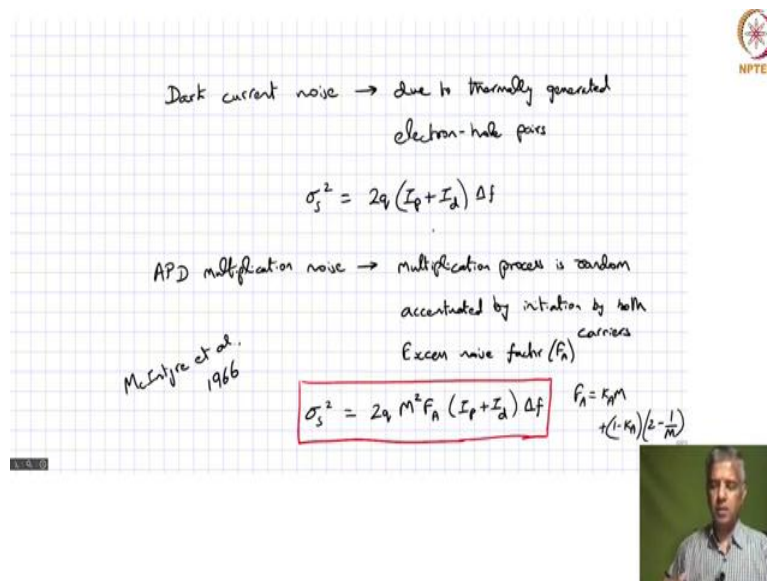 NPTEL
Dark current noise → due to thermally generated
electron-hole pairs
σₛ² = 2q (Iₚ + I_d) Δf
APD multiplication noise → Multiplication process is random
accentuated by initiation by both
carriers
Excess noise factor (F_A)
McIntyre et al.
1966
σₛ² = 2q M² F_A (Iₚ + I_d) Δf
F_A = K_A M
+ (1 - K_A)(2 - 1/M)